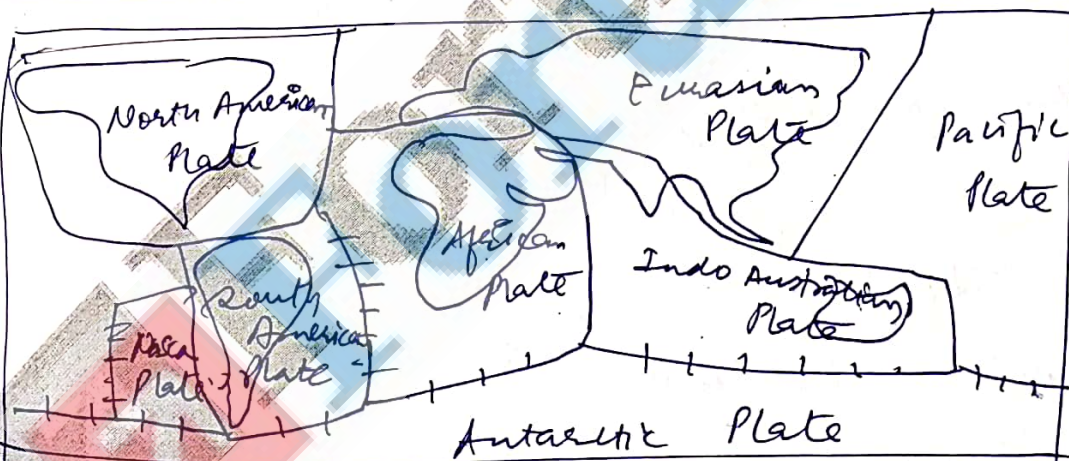 North American
Plate
Eurasian
Plate
Pacific
Plate
African
Plate
Indo Australian
Plate
South
America
Plate
Nasca
Plate
Antarctic Plate